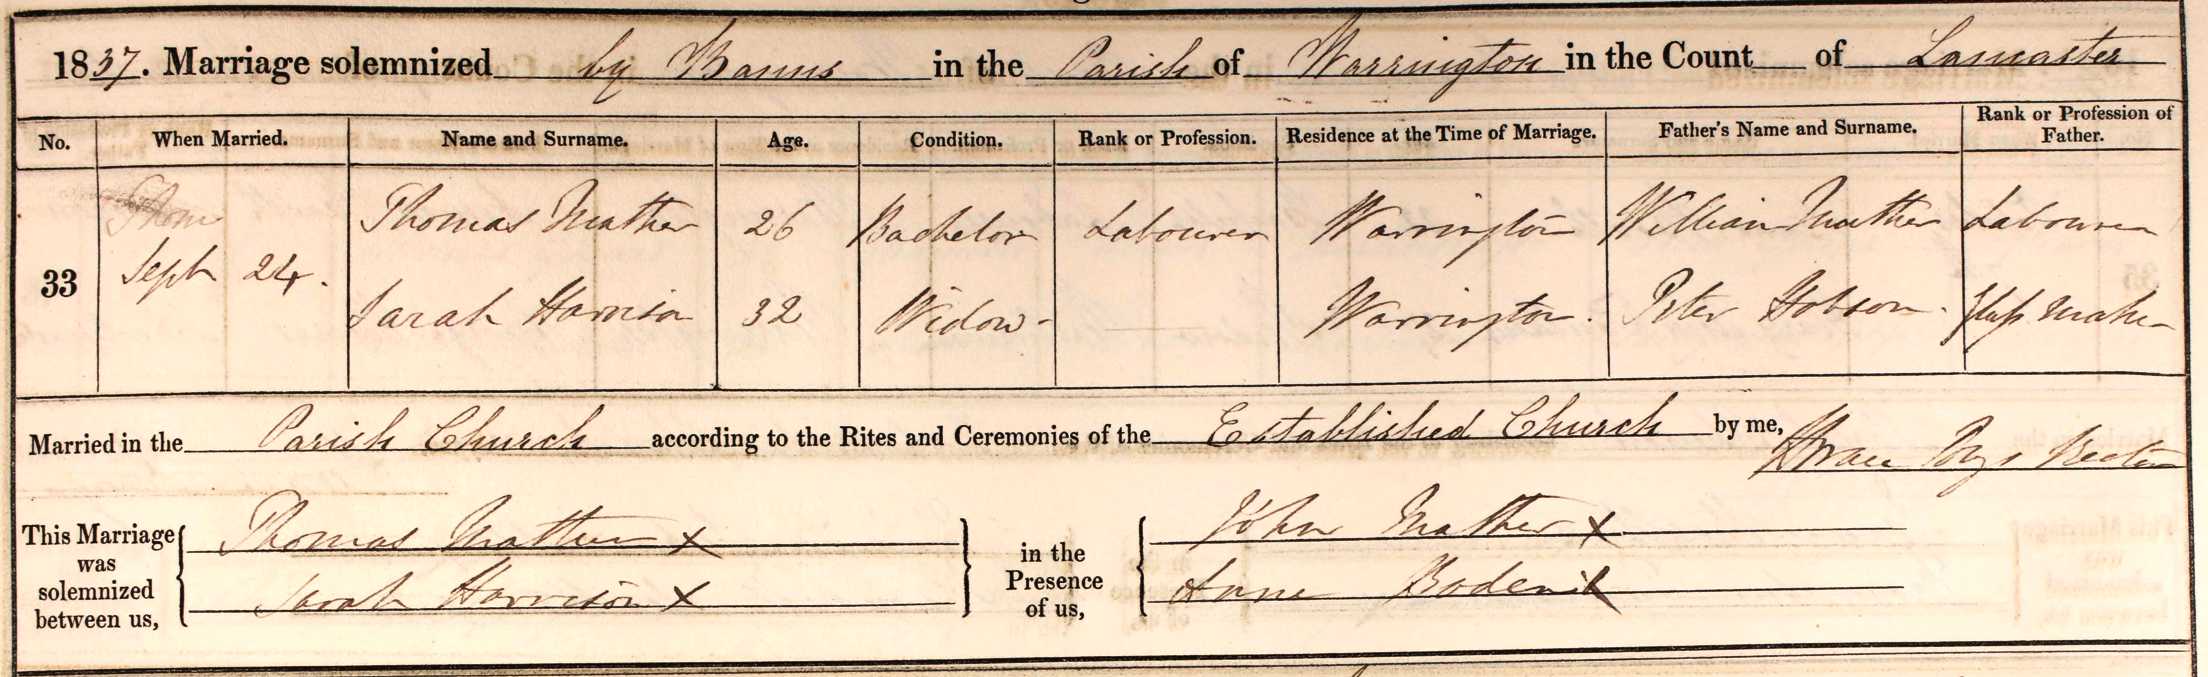 1837. Marriage solemnized by Banns in the Parish of Warrington in the Count of Lancaster
No. When Married. Name and Surname. Age. Condition. Rank or Profession. Residence at the Time of Marriage. Father's Name and Surname. Rank or Profession of Father.
Thom
Thomas Mather 26 Bachelor Labourer Warrington William Mather Labourer
33 Sept 24.
Sarah Harrison 32 Widow Warrington. Peter Hobson. Glass Maker
Married in the Parish Church according to the Rites and Ceremonies of the Established Church by me, Horace Powys Rector
This Marriage was solemnized between us, Thomas Mather X in the Presence of us, John Mather X
Sarah Harrison X Anne Boden X